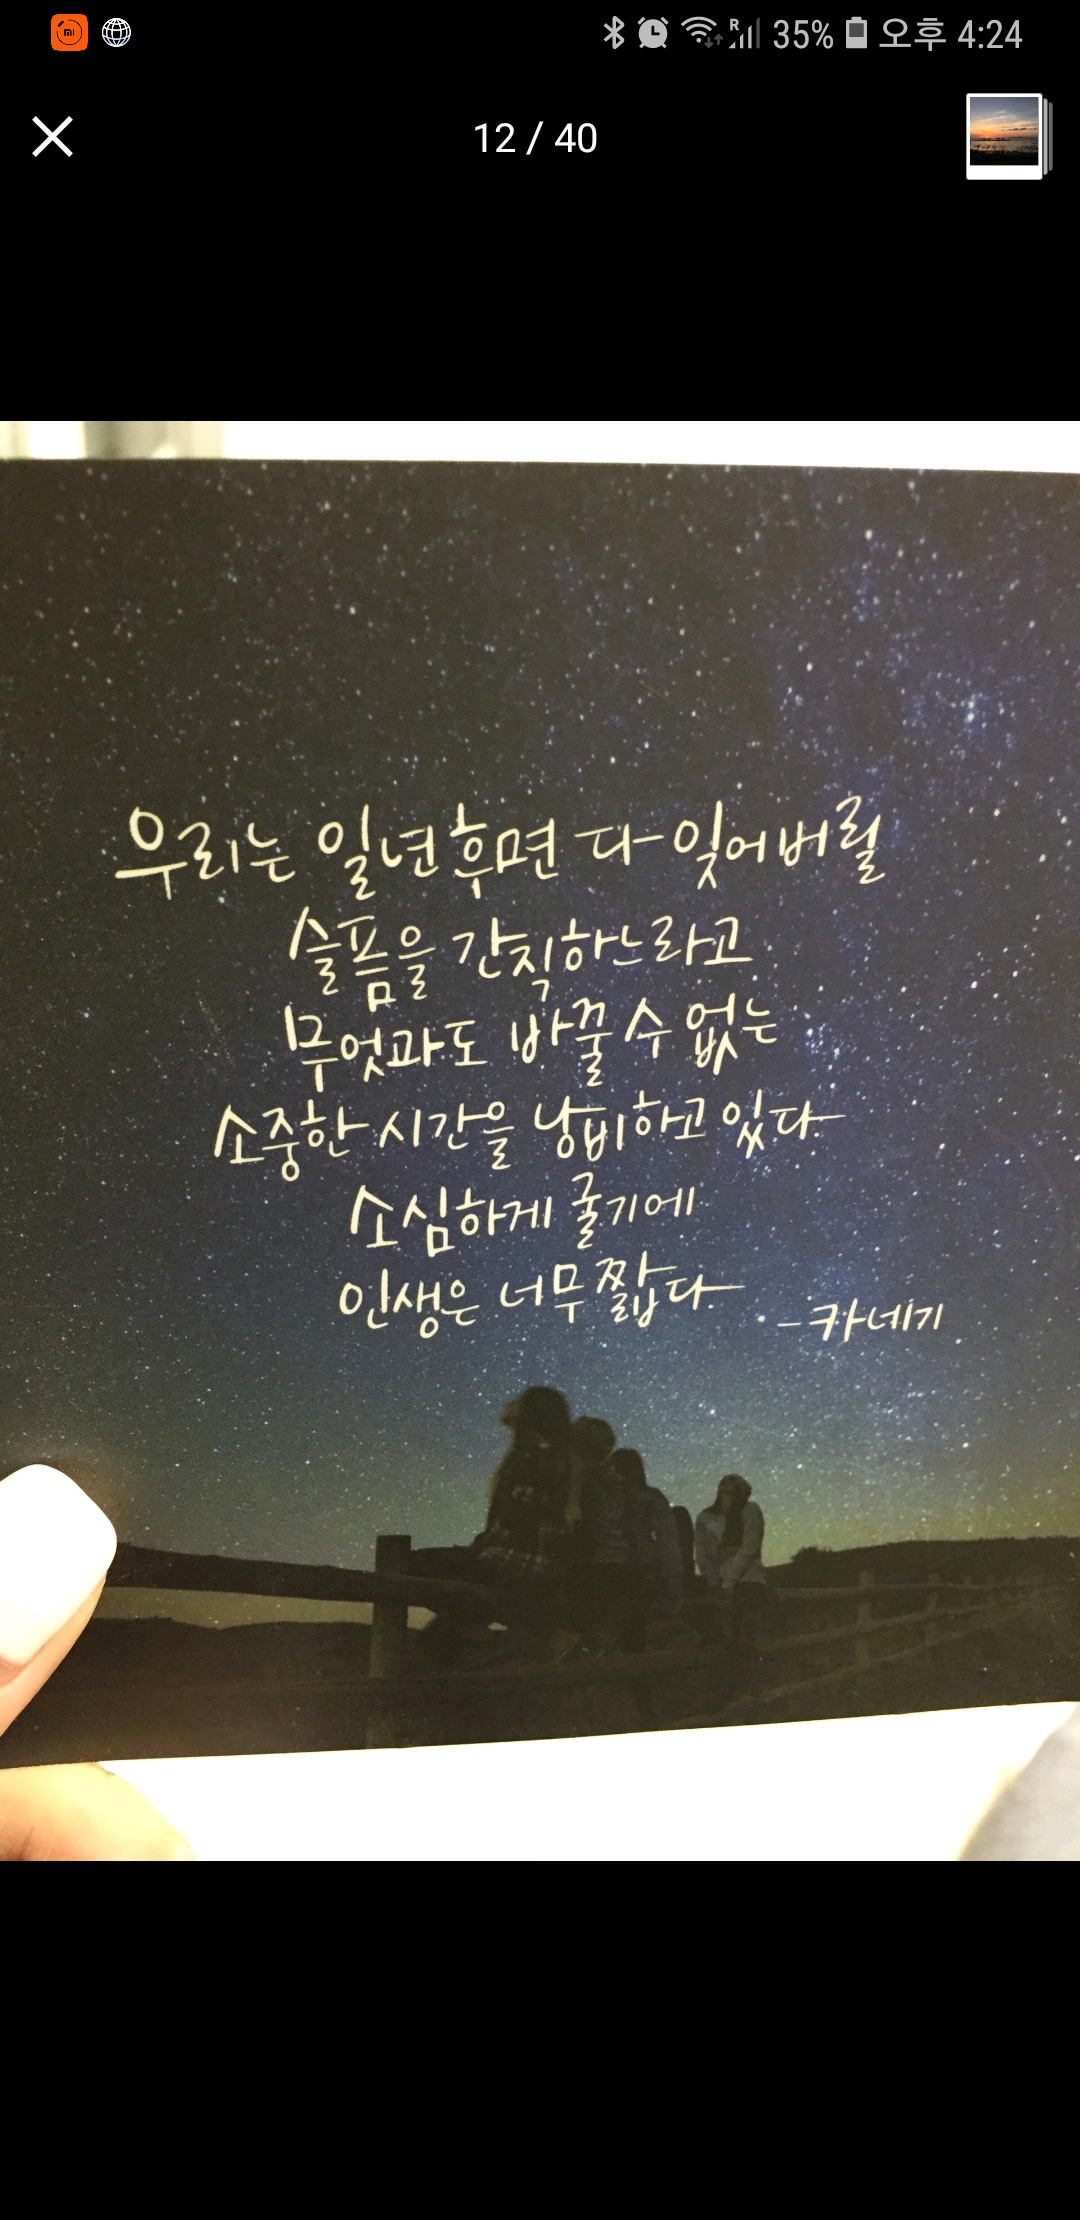 35% 오후 4:24
12 / 40
우리는 일년후면 다 잊어버릴
슬픔을 간직하느라고
무엇과도 바꿀 수 없는
소중한 시간을 낭비하고 있다.
소심하게 굴기에
인생은 너무 짧다.
-카네기